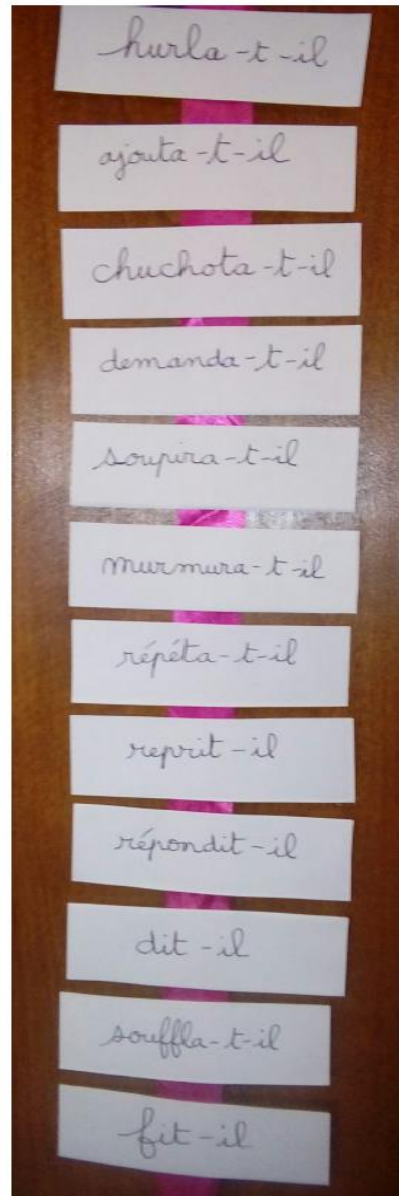 hurla-t-il
ajouta-t-il
chuchota-t-il
demanda-t-il
soupira-t-il
murmura-t-il
répéta-t-il
reprit-il
répondit-il
dit-il
souffla-t-il
fit-il